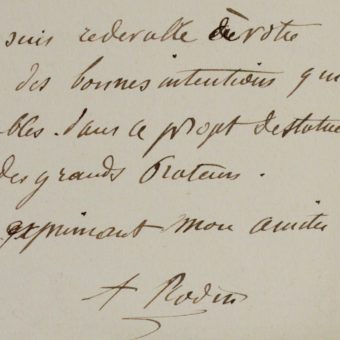 suis redevable de votre
des bonnes intentions qui
bles. dans ce projet de statue
des grands Orateurs.
exprimant mon amitié
A Rodin